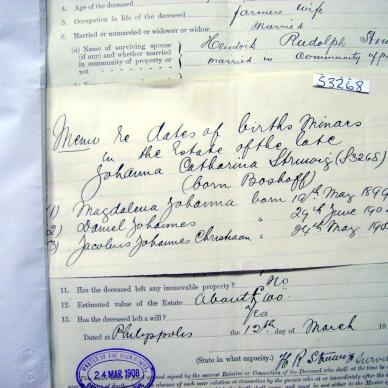 4. Age of the deceased
5. Occupation in life of the deceased farmers wife
6. Married or unmarried or widower or widow Married
(a) Name of surviving spouse Hendrik Rudolph
(if any) and whether married
in community of property or married in Community of
not
S3268
Memo re dates of births Minors
in the Estate of the late
Johanna Catharina Struwig (S3268)
(born Boshoff)
1) Magdalena Johanna born 19th May 1899
2) Daniel Johannes " 29th June
3) Jacobus Johannes Christiaan " 24th May
11. Has the deceased left any immovable property? No
12. Estimated value of the Estate About £100
13. Has the deceased left a will? Yes
Dated at Philippolis the 12th day of March 19
(State in what capacity.) H R Struwig
MASTER OF THE HIGH COURT
24 MAR 1908